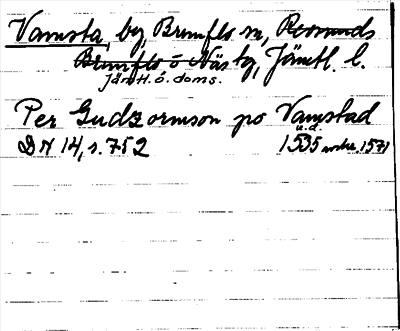 Vamsta, by, Brunflo sn, Revsunds
Brunflo o Näs tg, Jämtl. l.
Jämtl. ö. doms.
Per Gudzormson po Vamstad
u.d.
DN 14, s. 752 1535 1571